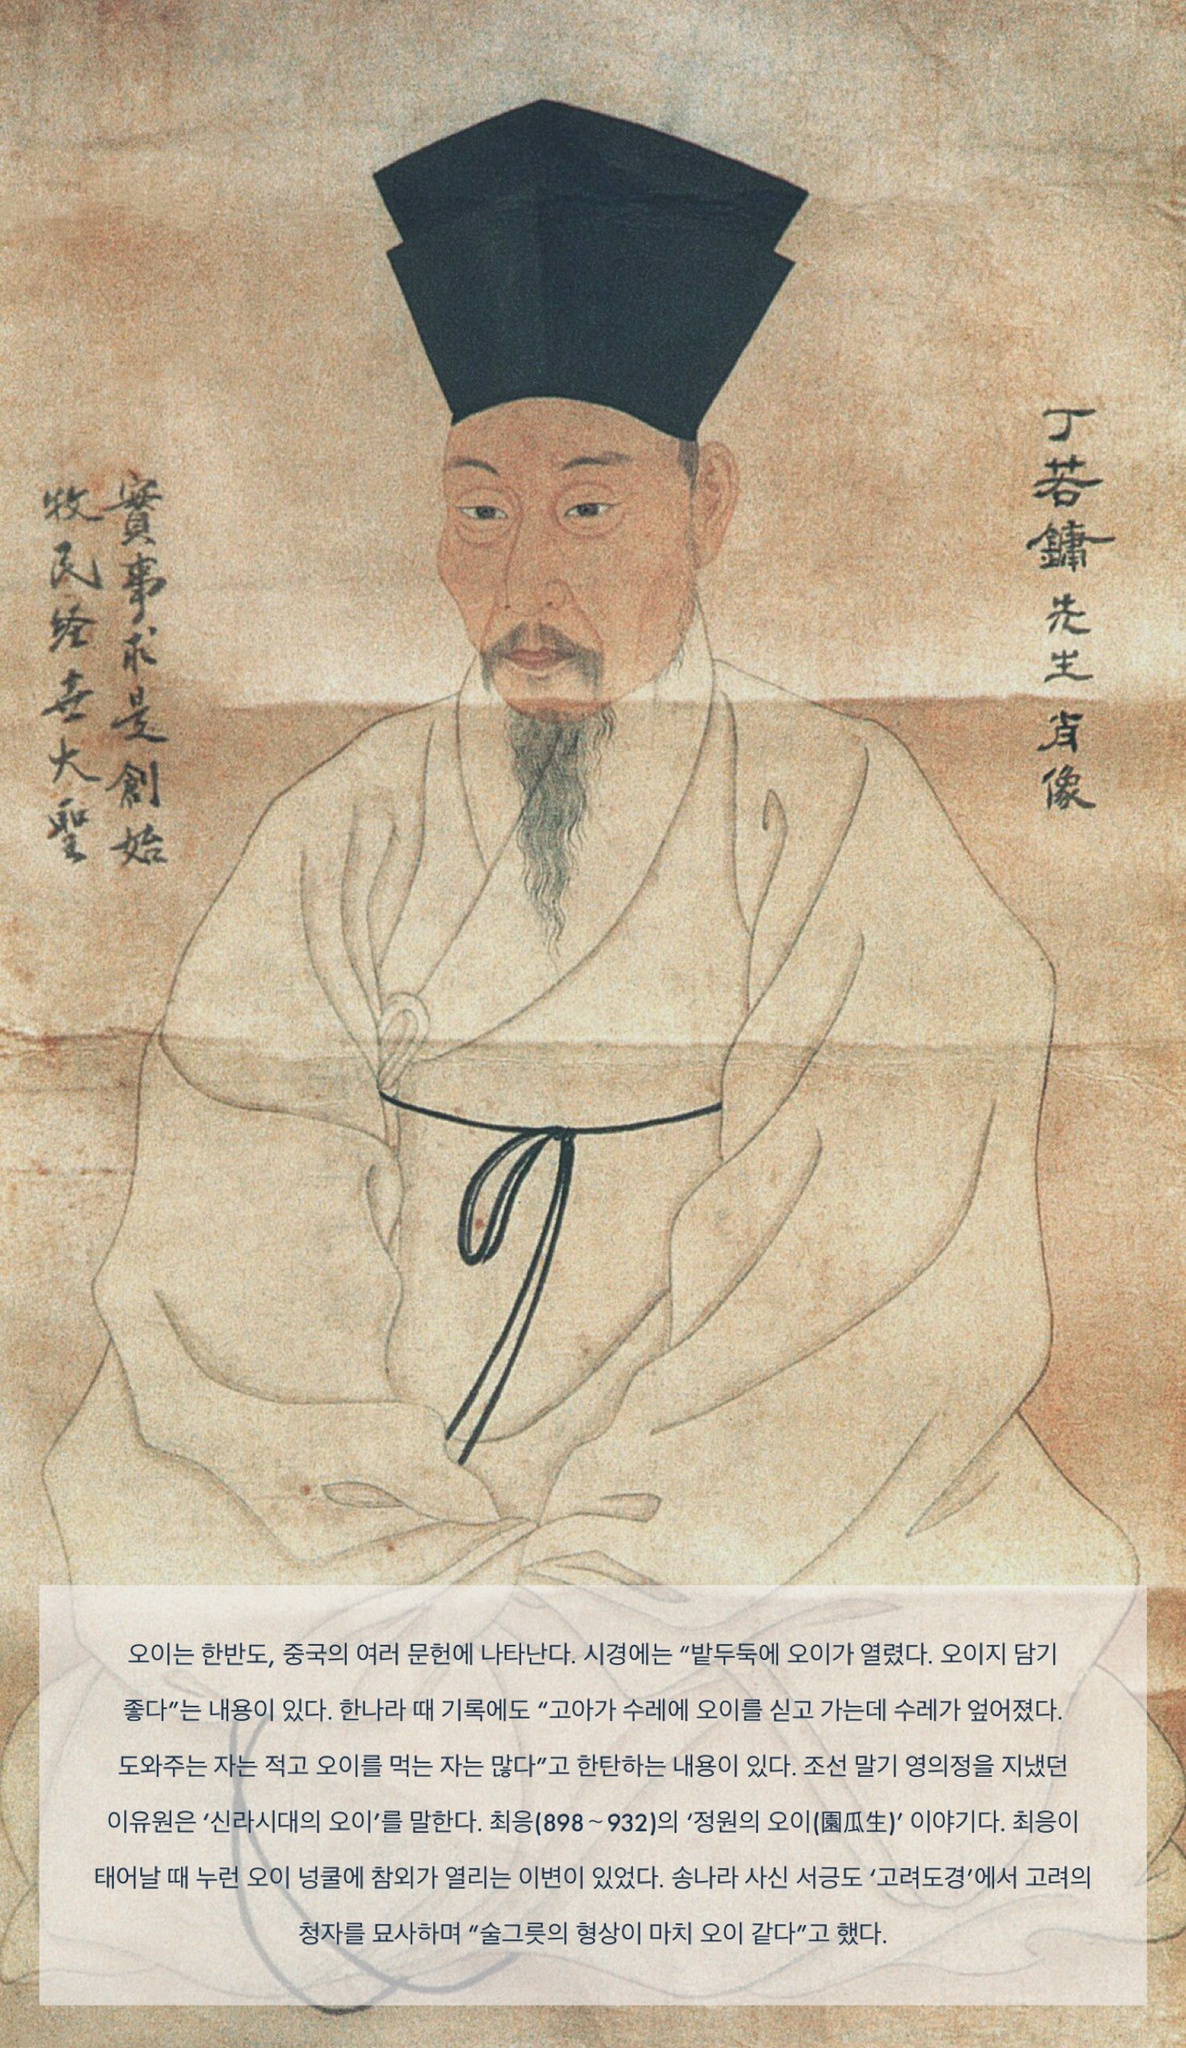 丁若鏞先生肖像
實事求是創始
牧民経世大聖
오이는 한반도, 중국의 여러 문헌에 나타난다. 시경에는 “밭두둑에 오이가 열렸다. 오이지 담기
좋다”는 내용이 있다. 한나라 때 기록에도 “고아가 수레에 오이를 싣고 가는데 수레가 엎어졌다.
도와주는 자는 적고 오이를 먹는 자는 많다”고 한탄하는 내용이 있다. 조선 말기 영의정을 지냈던
이유원은 ‘신라시대의 오이’를 말한다. 최응(898~932)의 ‘정원의 오이(園瓜生)’ 이야기다. 최응이
태어날 때 누런 오이 넝쿨에 참외가 열리는 이변이 있었다. 송나라 사신 서긍도 ‘고려도경’에서 고려의
청자를 묘사하며 “술그릇의 형상이 마치 오이 같다”고 했다.